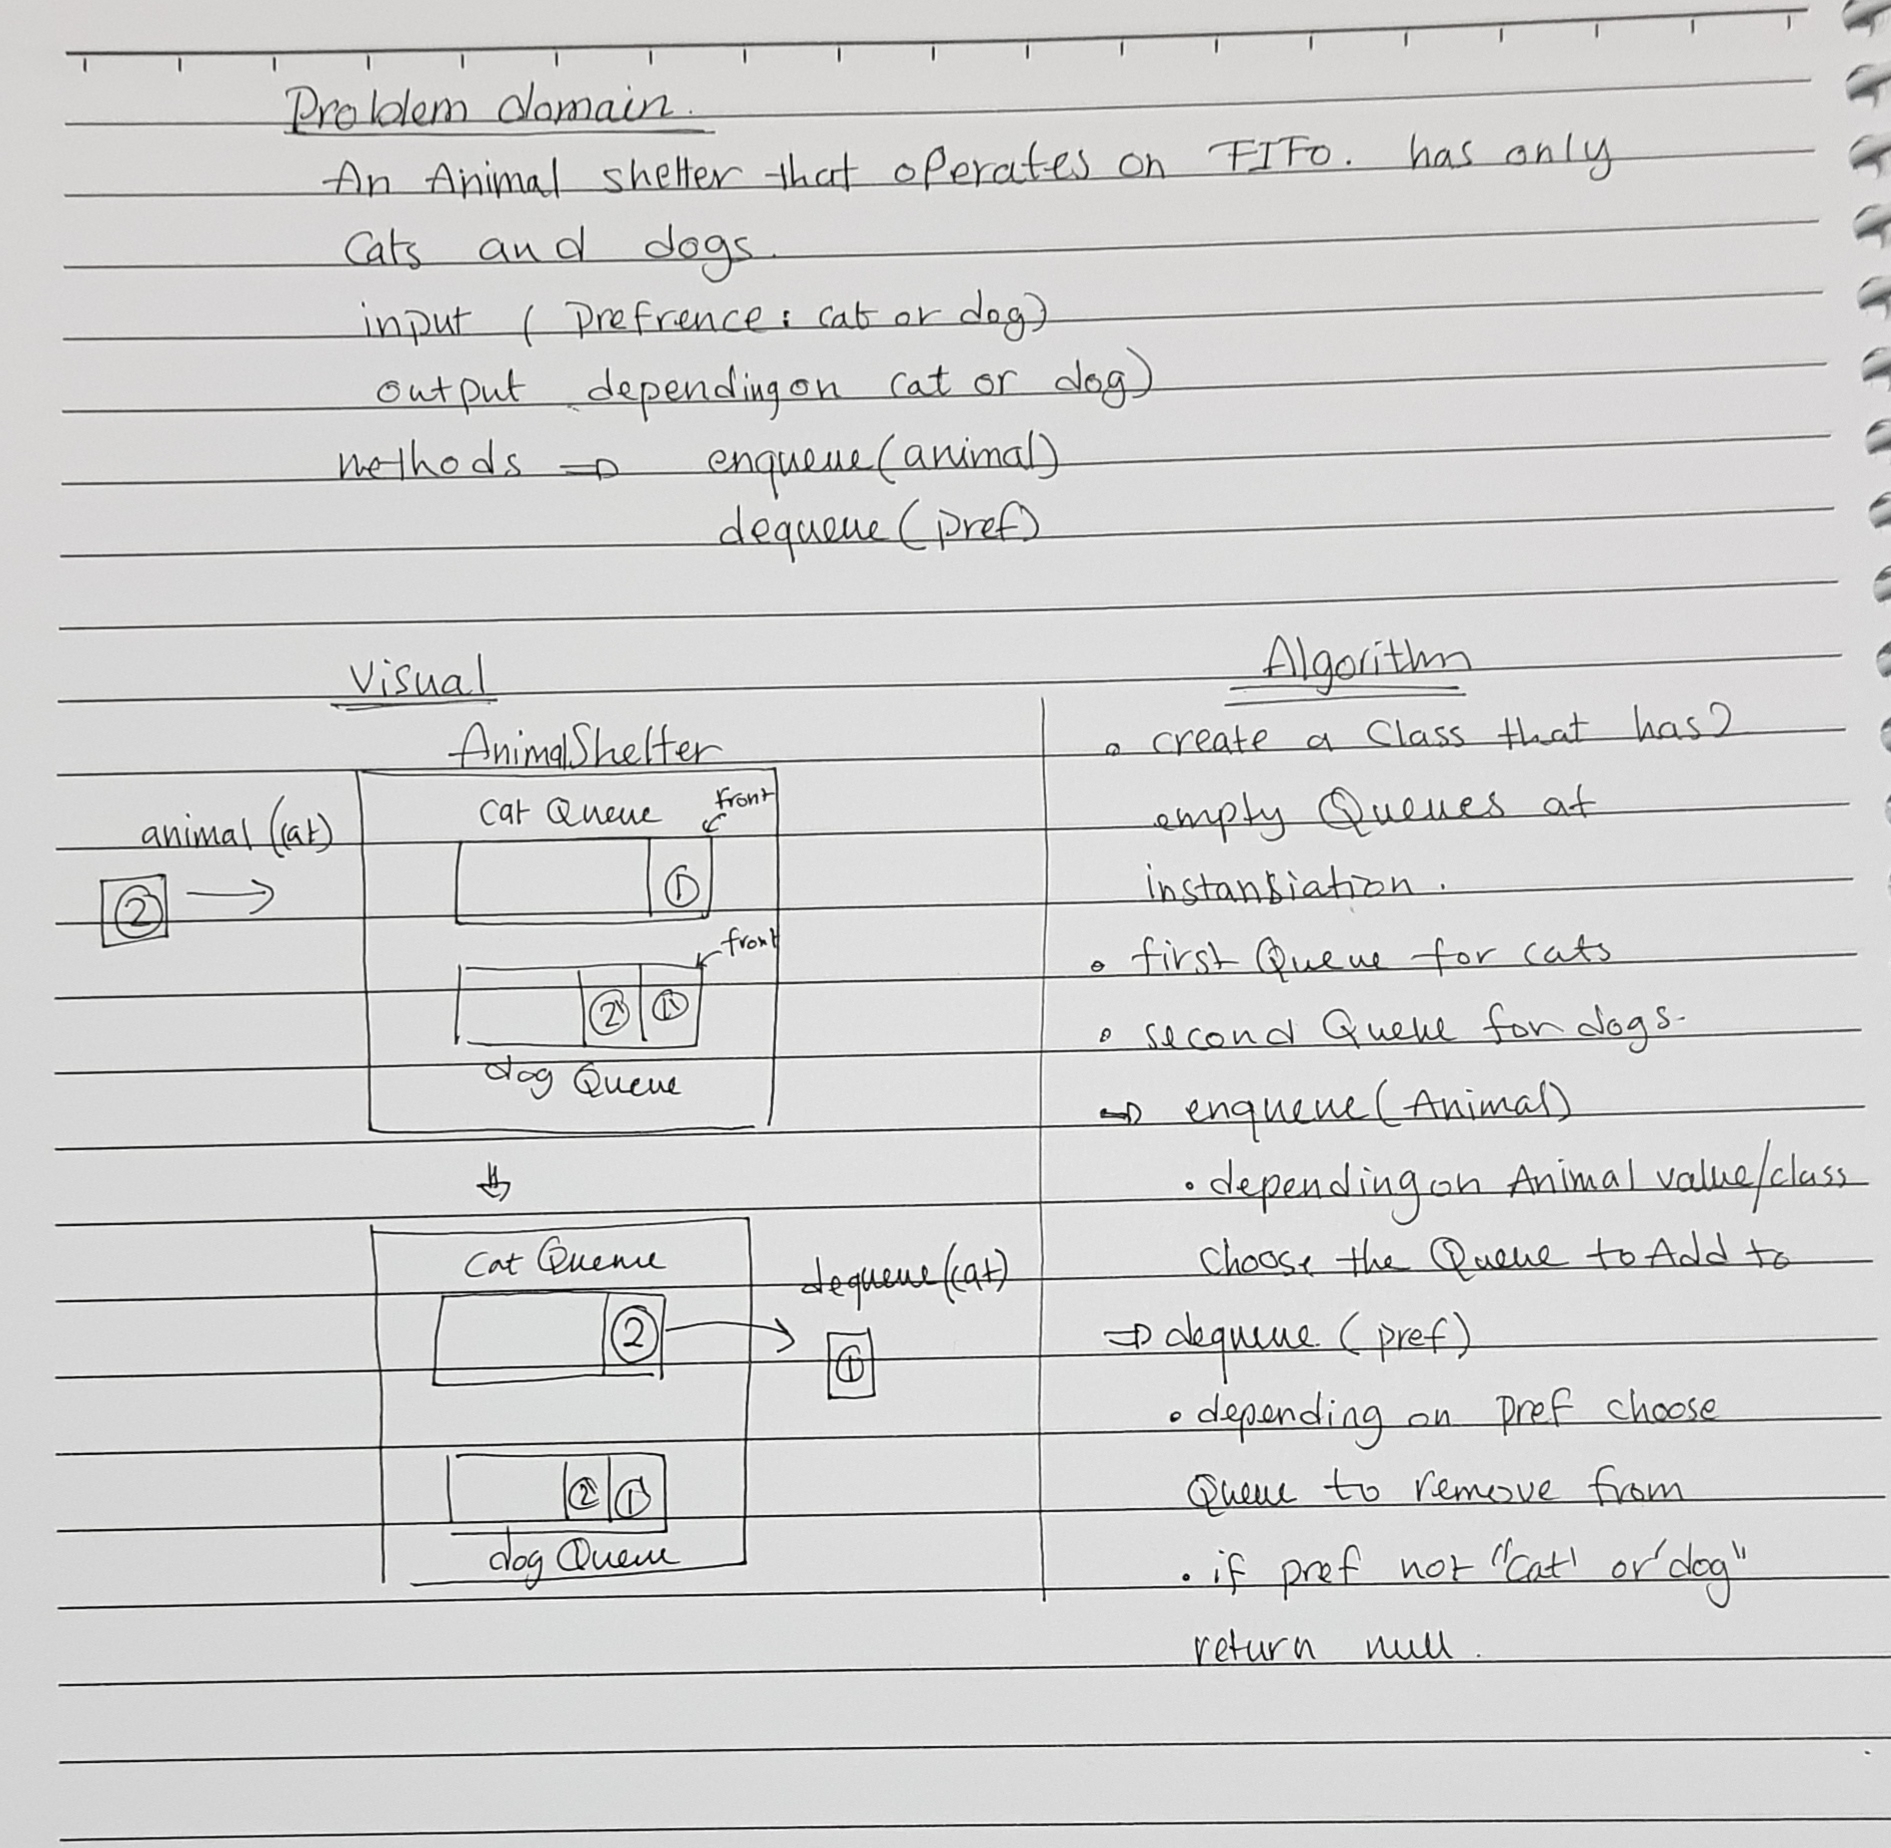 Problem domain.
An Animal shelter that operates on FIFO. has only
Cats and dogs.
input ( Prefrence: cat or dog)
output depending on cat or dog)
methods ⇒ enqueue(animal)
dequeue (pref)
Visual
AnimalShelter
animal (cat)
② →
Cat Queue
front
①
front
② ①
dog Queue
Cat Queue
② →
dequeue(cat)
①
② ①
dog Queue
Algorithm
• create a Class that has 2
empty Queues at
instansiation.
• first Queue for cats
• second Queue for dogs.
⇒ enqueue(Animal)
• depending on Animal value/class
Choose the Queue to Add to
⇒ dequeue (pref)
• depending on pref choose
Queue to remove from
• if pref not "cat" or "dog"
return null.